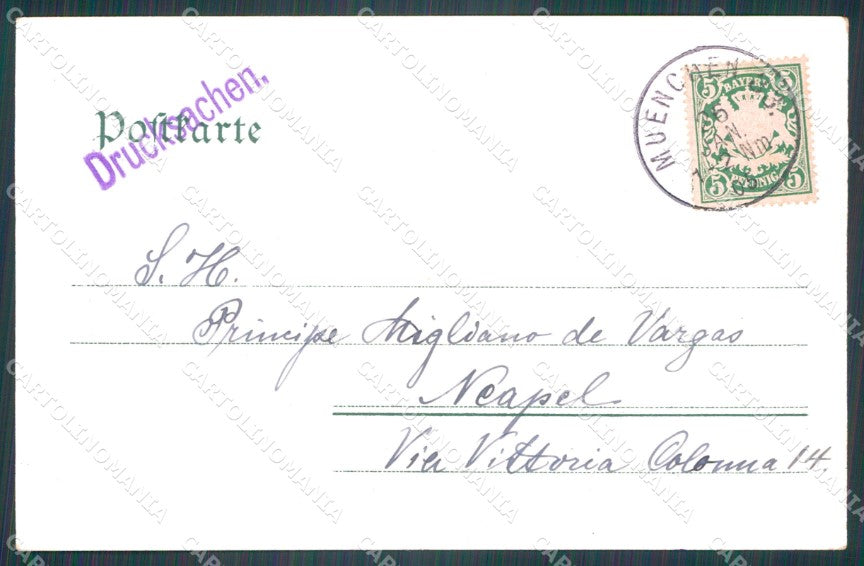 Postkarte
Drucksachen.
MUENCHEN
JAN.
Nm
05
5 BAYERN 5
5 PFENNIG 5
S. H.
Principe Migliano de Vargas
Neapel
Via Vittoria Colonna 14.
CARTOLINOMANIA